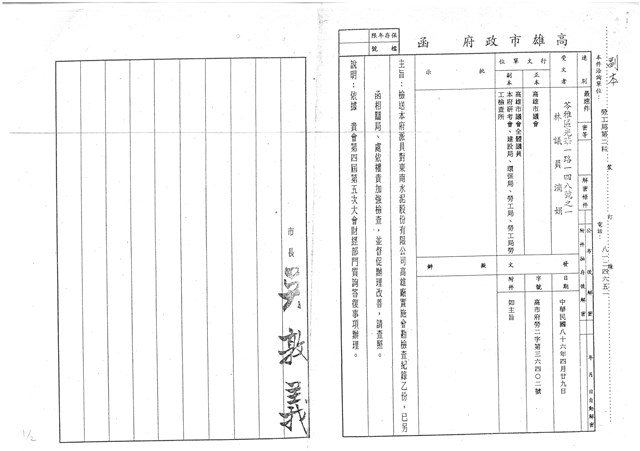 副本
本件洽詢單位：勞工局第二科
電話：八一二四六五一
高雄市政府　函
保存年限
檔號
速別
最速件
密等
解密條件
公布後解密
附件抽存後解密
年　月　日自動解密
受文者
苓雅區光華一路一四八號之一
林議員滴娟
行文單位
正本
高雄市議會
副本
高雄市議會全體議員
本府研考會、建設局、環保局、勞工局、勞工局勞工檢查所
發文
日期
中華民國八十六年四月廿九日
字號
高市府勞二字第三六四〇二號
附件
如主旨
批示
擬辦
主旨：檢送本府派員對東南水泥股份有限公司高雄廠實施會勘檢查紀錄乙份，已另
函相關局、處依權責加強檢查，並督促辦理改善，請查照。
說明：依據　貴會第四屆第五次大會財經部門質詢答復事項辦理。
市長　吳敦義
1/2